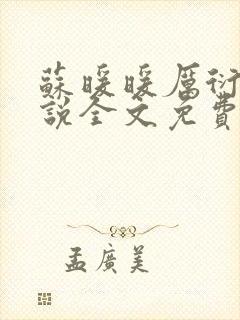 蘇暖暖厲衍
說全文免費
孟廣美